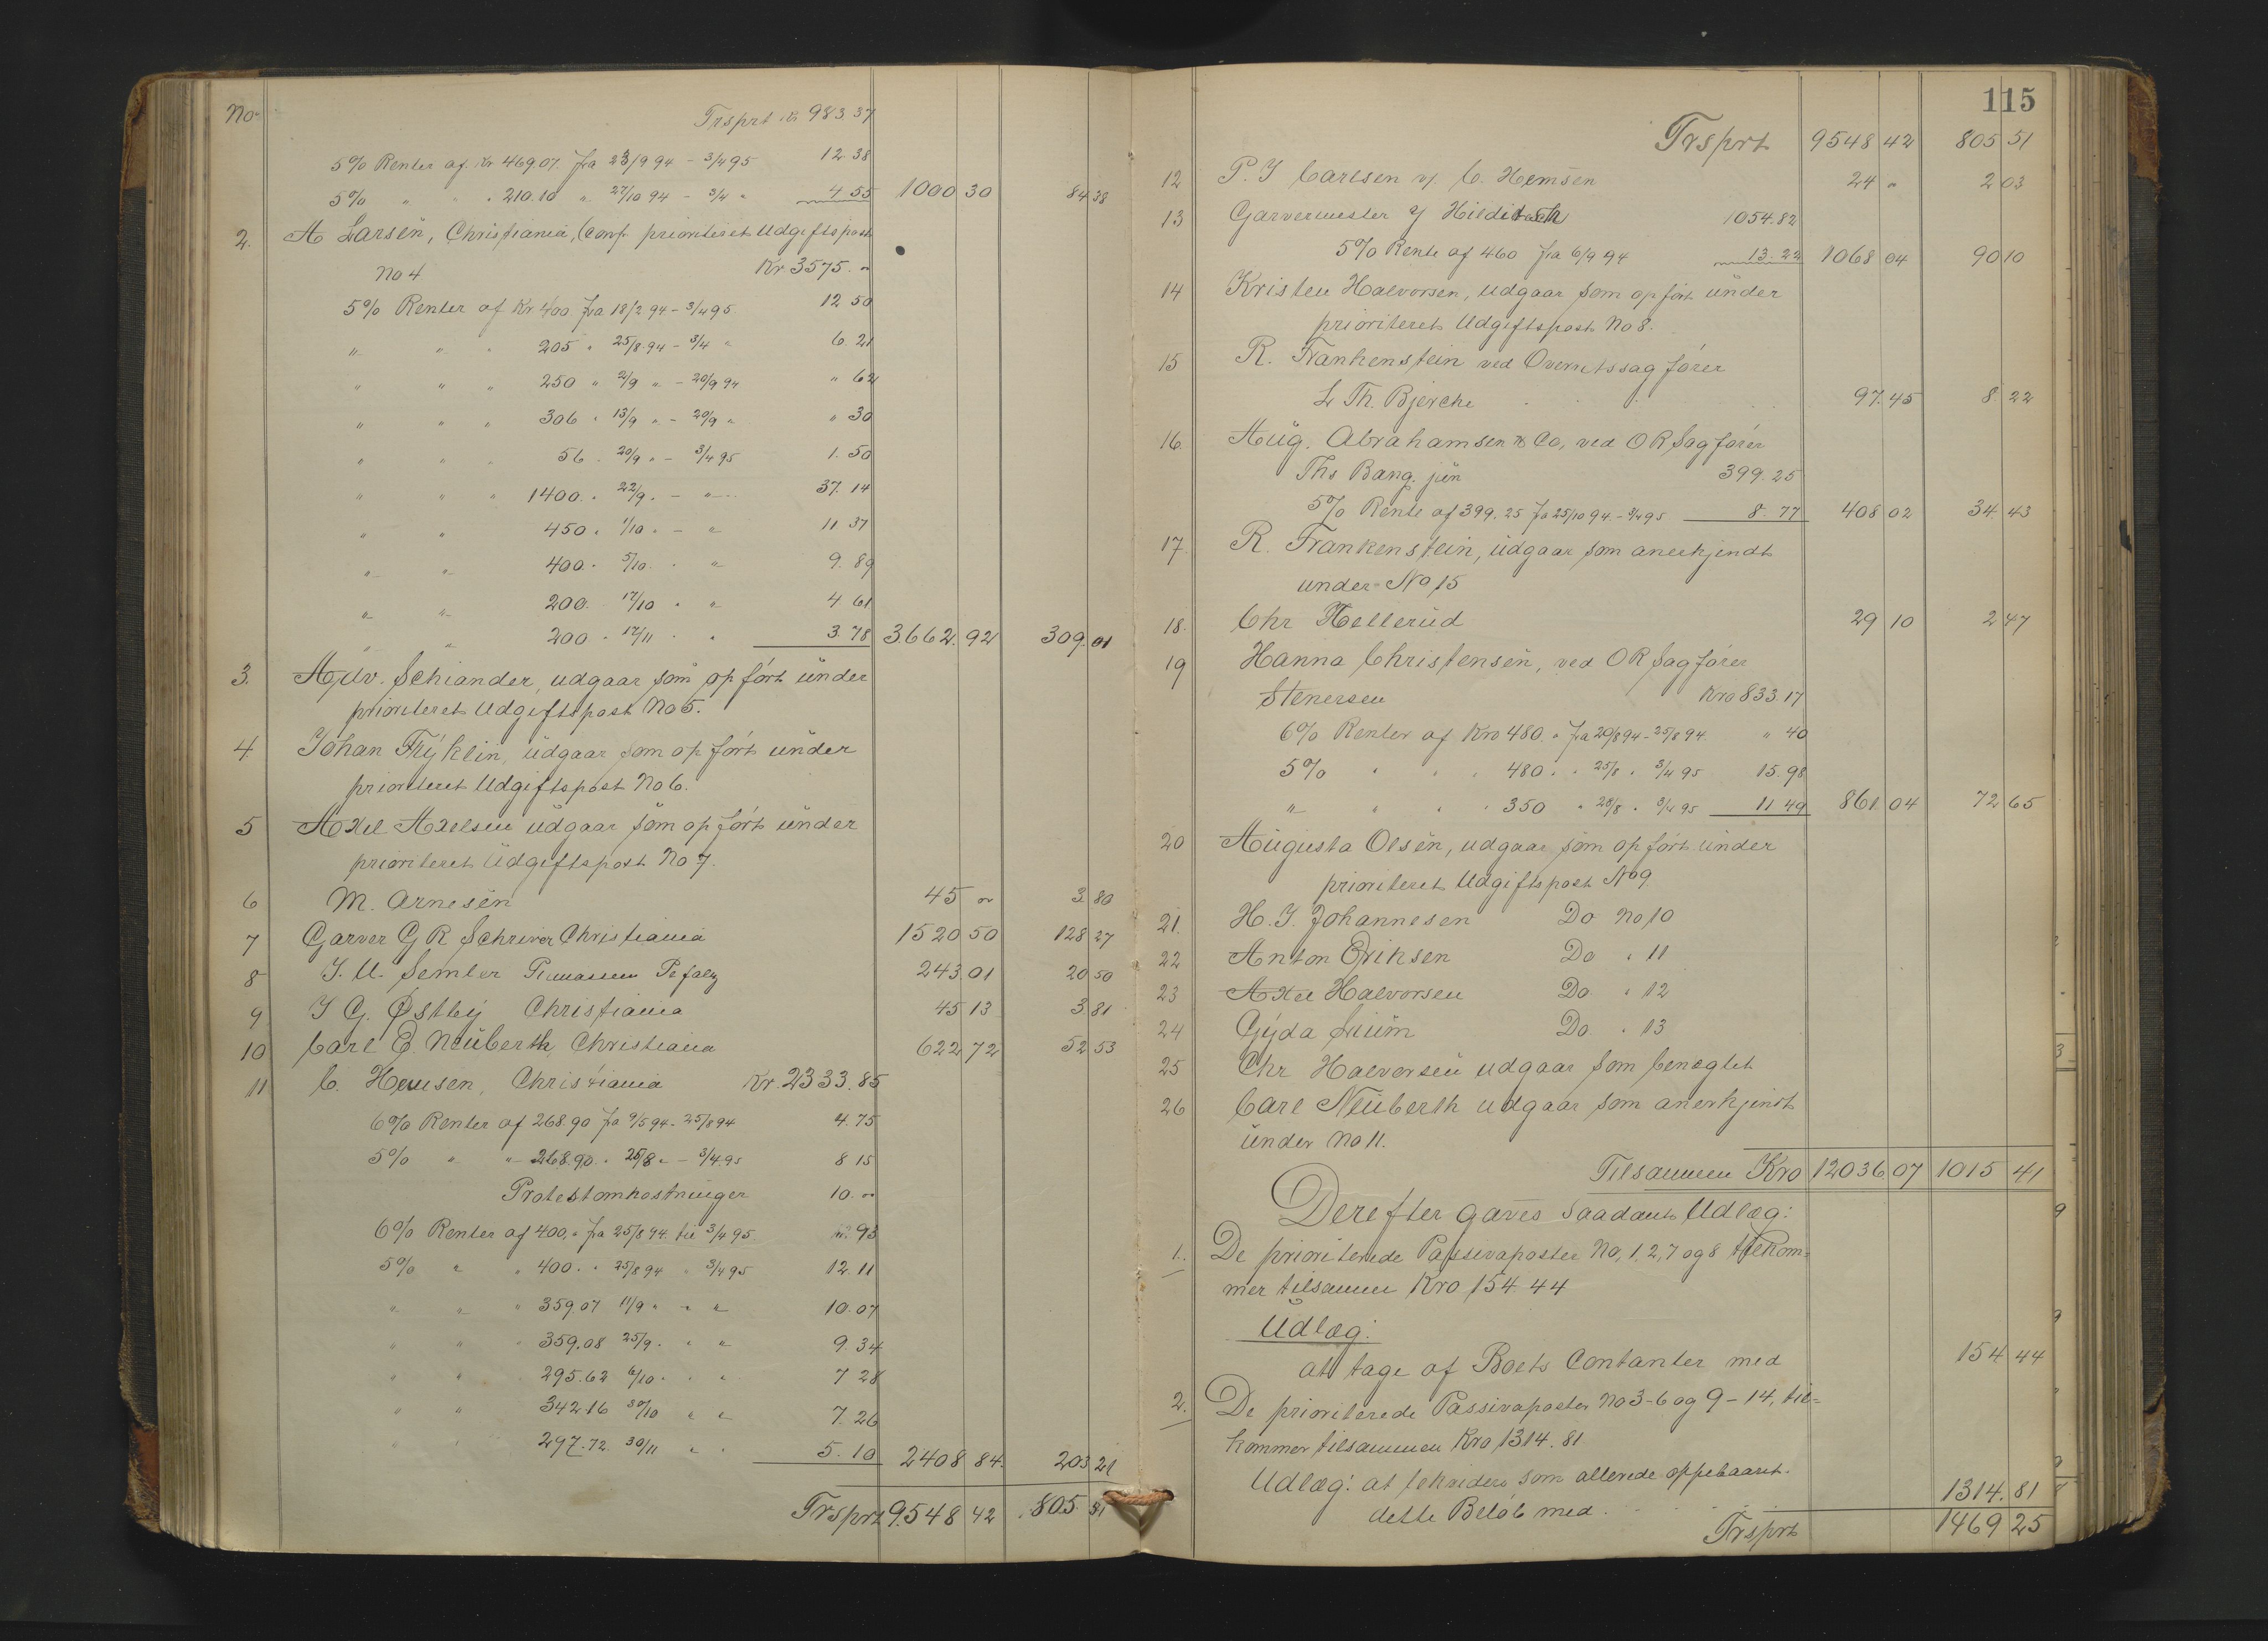 No
Trsprt Kr 983.37
5% Renter af Kr 469.07 fra 23/9 94 - 3/4 95 12 38
5% " " " 210.10 " 27/10 94 - 3/4 " 4 55 1000 30 84 38
2. A Larsen, Christiania, (conf prioriteret Udgiftspost
No 4 Kr 3575. "
5% Renter af Kr 400 fra 18/2 94 - 3/4 95 12 50
" " " 205 " 25/8 94 - 3/4 " 6 21
" " " 250 " 2/9 " - 20/9 94 " 62
" " " 306 " 13/9 " - 20/9 " " 30
" " " 56 " 20/9 " - 3/4 95 1. 50
" " " 1400. " 22/9 " - " 37. 14
" " 450 " 1/10 " - " 11 37
" " 400. " 5/10 " " 9. 89
" " 200. 17/10 " " 4 61
" " 200 " 17/11 " " 3. 78 3.662. 92 309. 01
3. Adv. Schiander, udgaar som opført under
prioriteret Udgiftspost No 5.
4. Johan Fryklin, udgaar som opført under
prioriteret Udgiftspost No 6.
5 Axel Axelsen udgaar som opført under
prioriteret Udgiftspost No 7.
6 M. Arnesen 45 " 3 80
7 Garver G R Schriver Christiania 1520 50 128 27
8 J. U. Semler 243 01 20 50
9 J G. Østby Christiania 45 13 3 81
10 Carl E Neuberth, Christiania 622 72 52 53
11 C. Hemsen, Christiania Kr. 2333. 85
6% Renter af 268.90 fra 9/5 94 - 25/8 94 4. 75
5% " " 268.90 " 25/8 " - 3/4 95 8 15
Protestomkostninger 10. "
6% Renter af 400. " fra 25/8 94 til 3/4 95 93
5% " " 400. " 25/8 94 " 3/4 95 12. 11
" " " 359.07 11/9 " " " 10. 07
" " " 359.08 25/9 " " " 9. 34
" " 295.62 6/10 " " " 7 28
" " 342.16 30/10 " " 7. 26
" " 297.72. 30/11 " " 5. 10 2408 84. 203 21
Trsprt 9.548 42 805 51
115
Trsprt 9548 42 805 51
12 P. J Carlsen v/ C. Hemsen 24 " 2 03
13 Garvermester J Hilditsch 1054.82
5% Rente af 460 fra 6/9 94 13. 22 1068 04 90 10
14 Kristen Halvorsen, udgaar som opført under
prioriteret Udgiftspost No 8.
15 R. Frankenstein ved Overretssagfører
L Th. Bjercke 97. 45 8 22
16. Aug. Abrahamsen & Co, ved O R Sagfører
Ths Bang. jun 399. 25
5% Rente af 399.25 fra 25/10 94. - 3/4 95 8. 77 408 02 34. 43
17. R. Frankenstein, udgaar som anerkjendt
under No 15
18. Chr Hellerud 29 10 2 47
19 Hanna Christensen, ved O R Sagfører
Stenersen Kro 833.17
6% Renter af Kro 480. " fra 20/8 94 - 25/8 94 " 40
5% " " " 480. " 25/8 " 3/4 95 15. 98
" " " " 350 " 28/8 " 3/4 95 11 49 861. 04 72 65
20 Augusta Olsen, udgaar som opført under
prioriteret Udgiftspost No 9
21. H. J. Johannesen Do No 10
22 Anton Eriksen Do " 11
23 Axel Halvorsen Do. " 12
24 Gyda Do. " 13
25 Chr Halvorsen udgaar som benegtet
26 Carl Neuberth udgaar som anerkjendt
under No 11.
Tilsammen Kro 12036 07 1015 41
Derefter gaves saadant Udlæg:
1. De prioriterede Passivaposter No, 1, 2, 7 og 8 tilkom=
mer tilsammen Kro 154.44
Udlæg:
at tage af Boets Contanter med 154 44
2. De prioriterede Passivaposter No 3-6 og 9-14, til=
kommer tilsammen Kro 1314.81.
Udlæg: at som allerede oppebaaret.
dette Beløb med. 1314. 81
Trsprt 1469 25